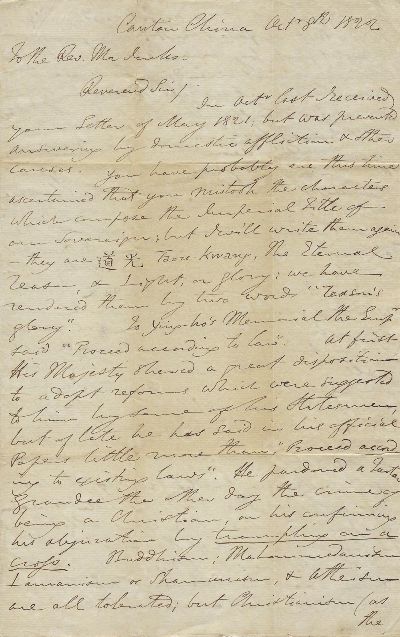 Canton China Octr 8th 1822
To the Rev. Mr
Reverend Sir/
In Octr last I received
your Letter of May 1821, but was prevented
answering by domestic affliction & other
causes. You have probably ere this time
ascertained that you mistook the characters
which compose the Imperial Title of
our Sovereign; but I will write them again
they are 道光 Taou Kwang, The Eternal
reason, & Light, or glory; we have
rendered them by two words "reason's
glory. To Memorial the Empr
said "Proceed according to law". At first
His Majesty shewed a great disposition
to adopt reforms which were suggested
to him by some of his Statesmen,
but of late he has said in his official
Papers little more than, "Proceed accord
ing to existing laws". He pardoned a Tartar
Grandee the other day the crime of
being a Christian, on his confirming
his abjuration by trampling on a
cross. Buddhism, Mahommedanism
Lamanism or Shamanism, & Atheism
are all tolerated; but Christianism (as
the